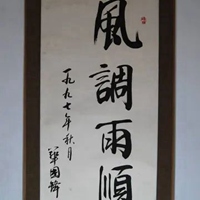 風調雨順
一九九七年秋月
華國鋒